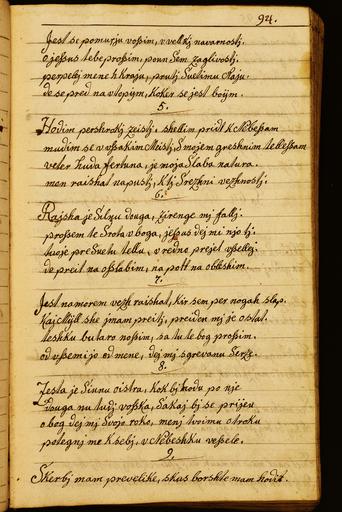 94.
Jest se pomurju vosim, v velikj navarnostj.
o jesus tebe prosim, poun sem zaglivosti.
perpelej mene h kraju, prutj Suetimu Raju.
de se pred na vtopim, koker se jest boijm.
5.
Hodim pershroktj zeistj, shelim pridt k Nebesam
mudim se v vsakim Meistj, s mojem greshnim tellessam
veter huda fertuna, je moja slaba natura.
men raishat napustj, k tj Srezhni vezhnostj.
6.
Rajska je Silnu douga, zirenge mj fallj.
prossem te Srota vboga, jesus dej mi njo tj.
tvoje pre Suetu tellu, vredno prejet vsellej
de preit na osslabim, na pott na obleshim.
7.
Jest namorem vezh raishat, kir sem per nogah slap.
Kaj she jmam preitj, preuda mj je ostat.
teshku butaro nosim, sa tu te bog prosim.
od vsemi jo od mene, dej mj sgrevanu Serze.
8.
Zesta je Sinnu oistra, kok bj hodu po nje
Douga nu tudj voska, Sakaj bj se prijeu
o bog dej mj Svojo roko, menj tvoimu otroku
potegnj me k sebj, v Nebeshku vesele.
9.
Skerbj mam prevelike, skus borshte mam hodit.